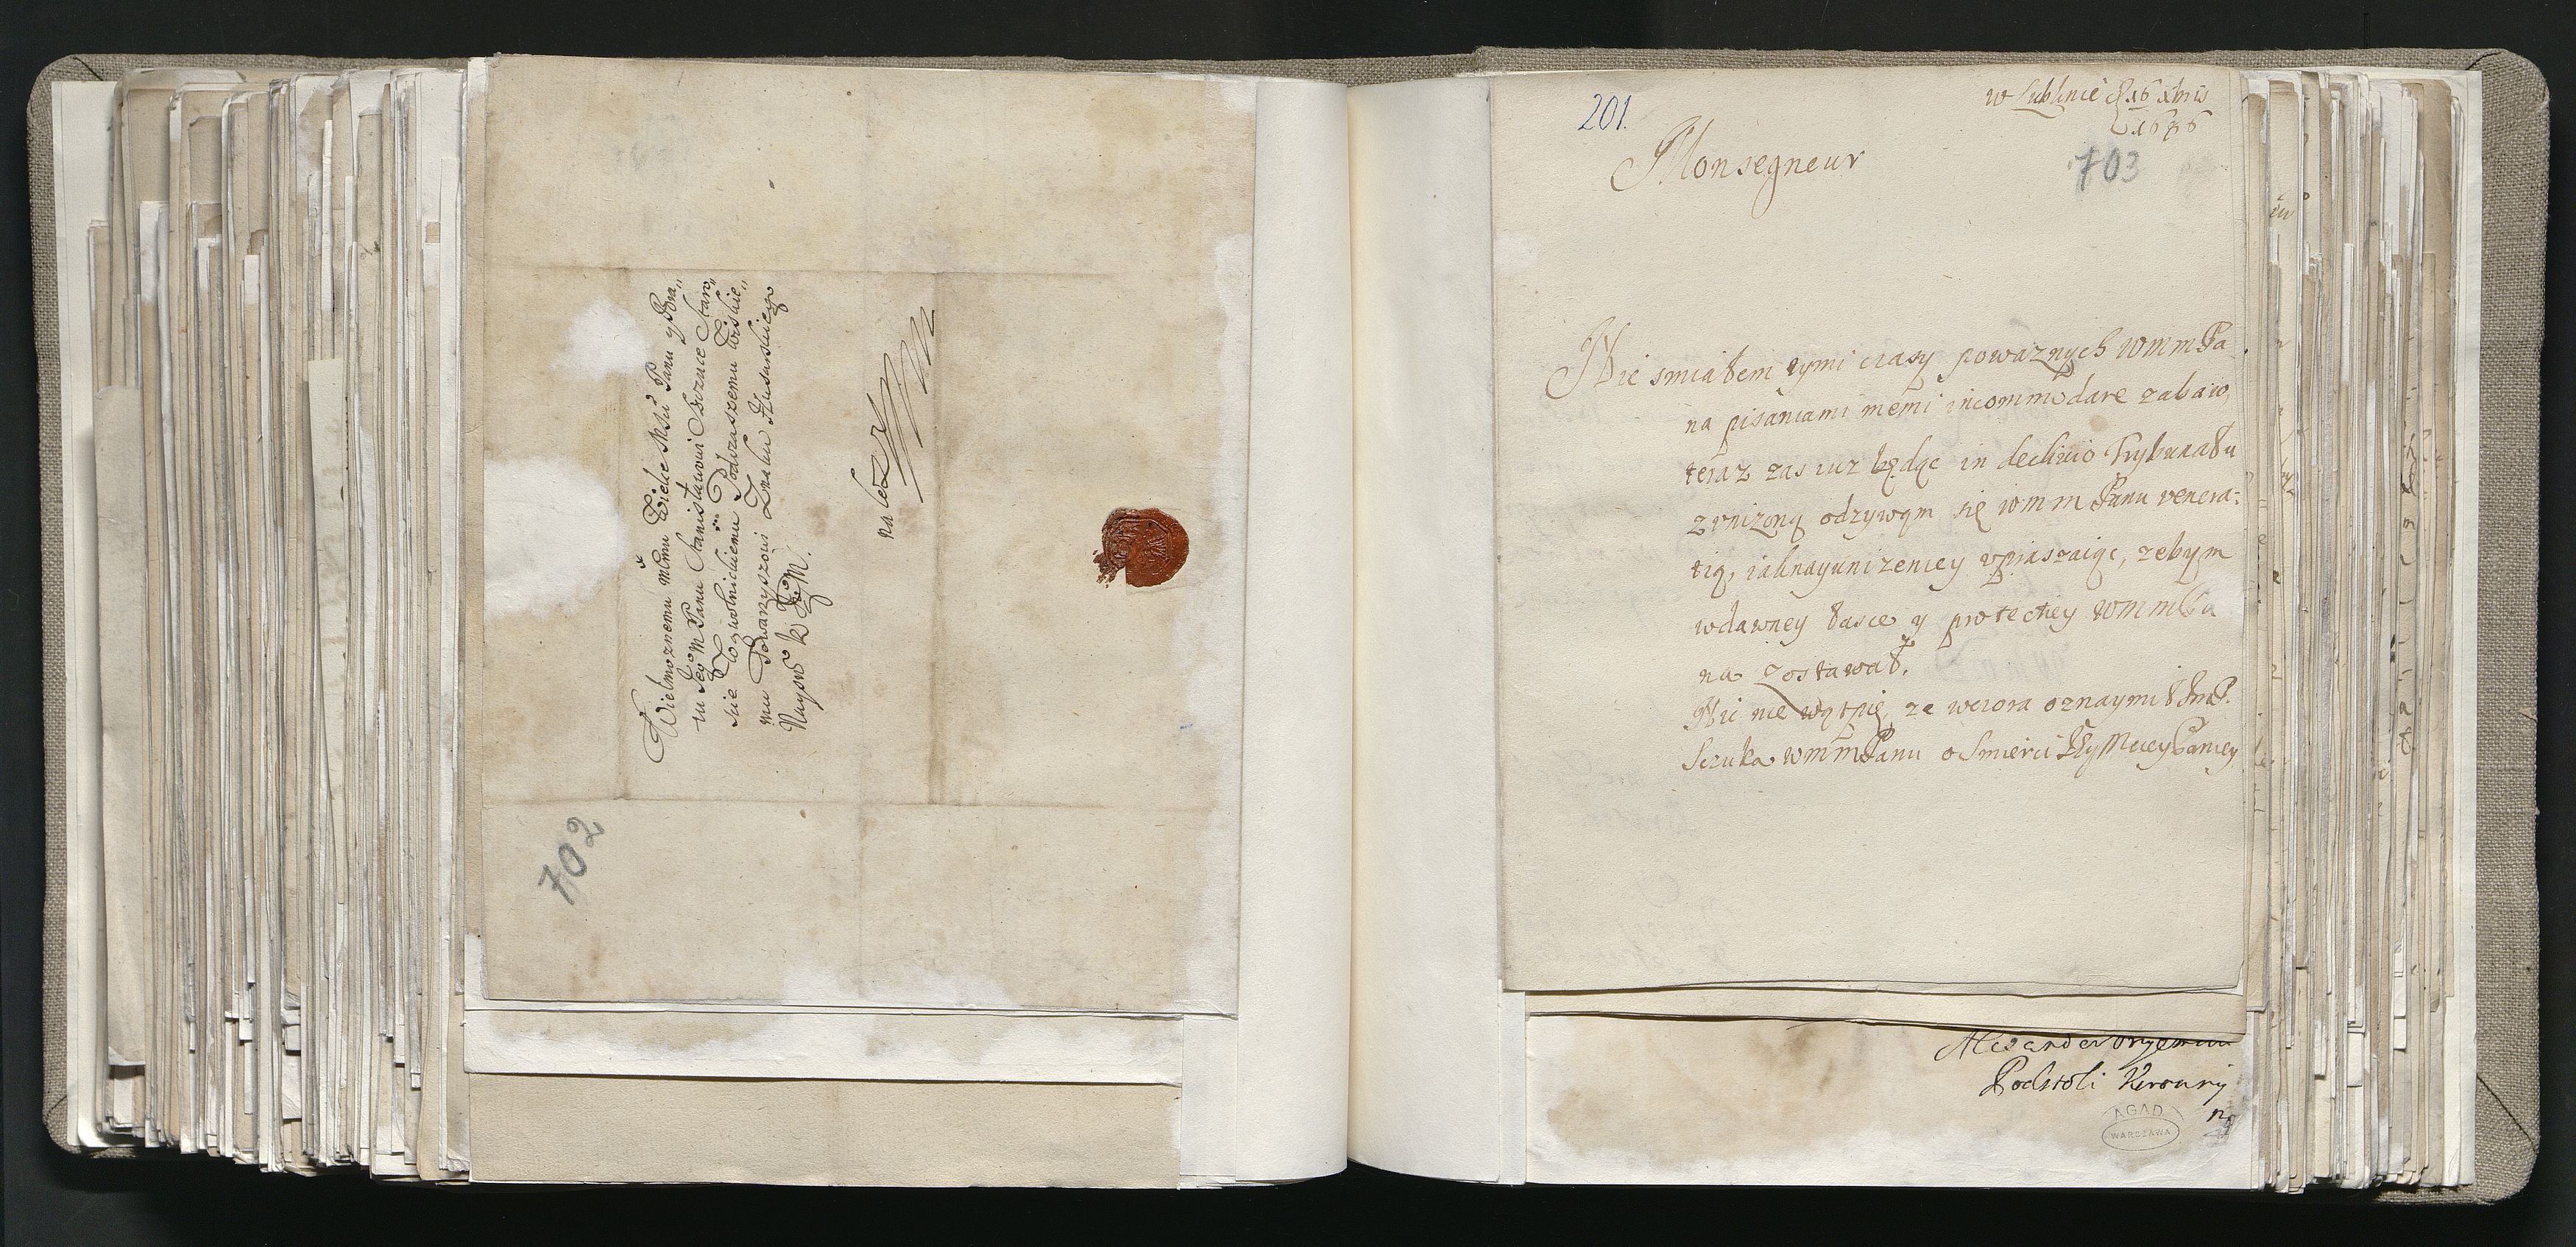 702
Wielmoznemu memu Wielce Msci Panu y Bra„
tu Jeo M Panu Stanisławowi Sczuce Staro„
scie Wąwolnickiemu Podczaszemu Wiskie„
mu Towarzyszowi Znaku Husarskiego
Nayo K Jeo M.
należy
201.
w Lublinie 16 Xbris
1686
703
Monsegneur
Nie smiałem tymi czasy powaznych WMMPa
na pisaniami memi incommodare zabaw,
teraz zas iuz będąc in declivio Trybunału
z vnizoną odzywąm się WMMPanu venera=
tią, iaknayunizeniey vpraszaiąc, zebym
wdawney łasce y protectiey WMMPa
na zostawał.
Nic nie wątpię ze wczora oznaymił JmP.
Sczuka WMMPanu o Smierci JeyMciey Paniey
Alexander
Podstoli
AGAD
WARSZAWA